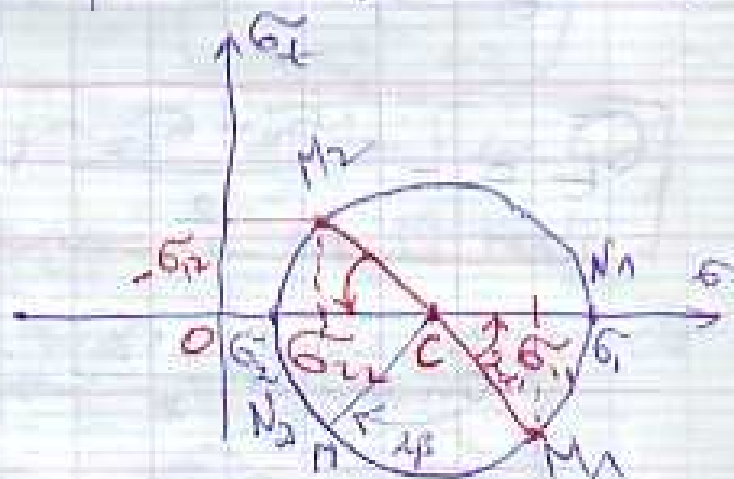 σt
M2
-σ12
N1
σ
O
σ2
σ22
C
α1
σ11
σ1
N2
M
2β
M1